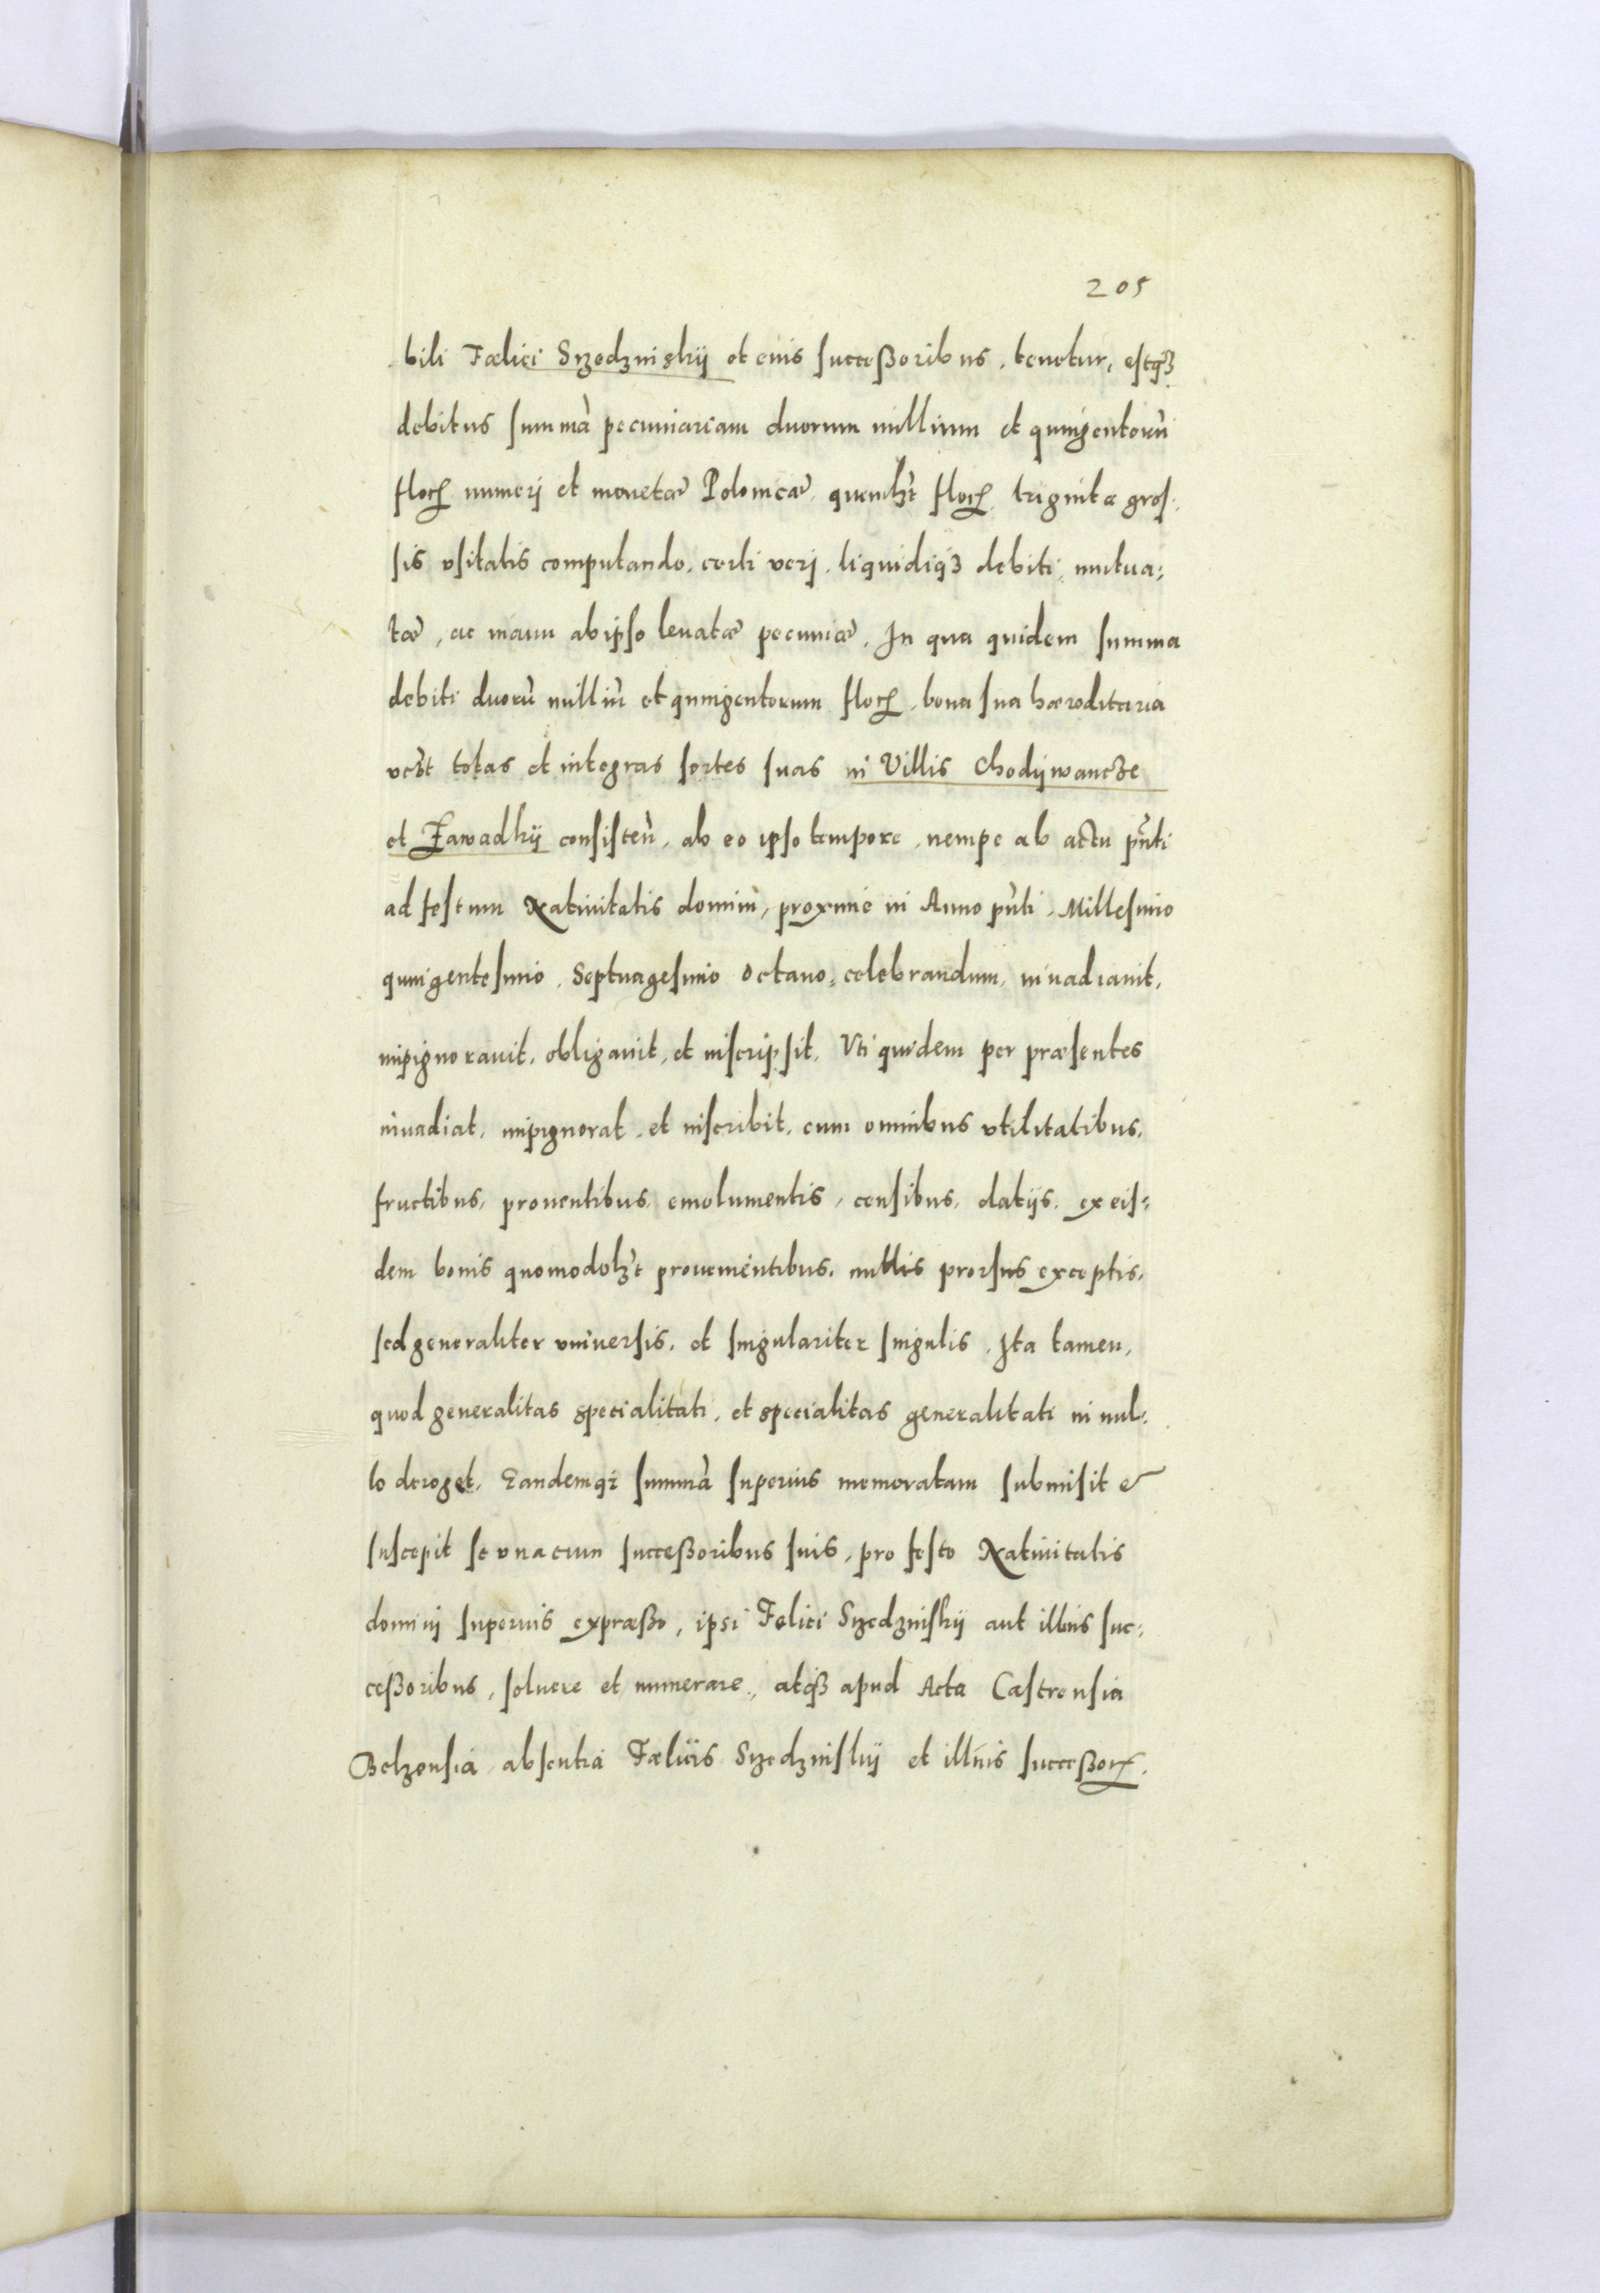 205
bili Fælici Srzedzinskij et eius successoribus, tenetur, estqȝ
debitus summã pecuniariam duorum millium et quingentorũ
floꝝ numeri et monetæ Polonicæ, quemlꝫt floꝝ triginta gros-
sis vsitatis computando, certi veri, liquidiqȝ debiti, mutua-
tæ, ac manu ab ipso leuatæ pecuniæ, In qua quidem summa
debiti duorũ milliũ et quingentorum floꝝ, bona sua hæreditaria
vcȝt totas et integras sortes suas in Villis Chodijwancze
et Zawadkij consisteñ, ab eo ipso tempore, nempe ab actu pñti
ad festum Natiuitatis domini, proximè in Anno pñti, Millesimo
quingentesimo, Septuagesimo octauo, celebrandum, inuadiauit,
impignorauit, obligauit, et inscripsit, Vti quidem per præsentes
inuadiat, impignorat, et inscribit, cum omnibus vtilitatibus,
fructibus, prouentibus, emolumentis, censibus, datijs, ex eis-
dem bonis quomodolꝫt prouenientibus, nullis prorsus exceptis,
sed generaliter vniuersis, et singulariter singulis, Ita tamen,
quod generalitas specialitati, et specialitas generalitati in nul-
lo deroget, Eandemqȝ summã superius memoratam submisit &
suscepit se vna cum successoribus suis, pro festo Natiuitatis
domini superius expræsso, ipsi Felici Srzedzinskij aut illius suc-
cessoribus, soluere et numerare, atqȝ apud Acta Castrensia
Belzensia, absentia Fælicis Srzedzinskij et illius successoꝝ,